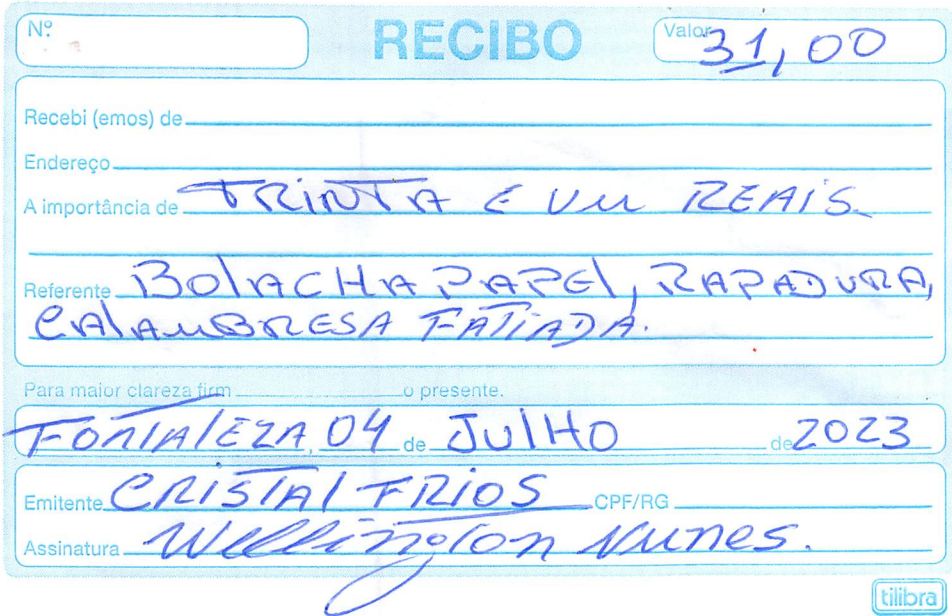 Nº RECIBO Valor 31,00
Recebi (emos) de
Endereço
A importância de TRINTA E UM REAIS.
Referente BOlACHA PAPEl, RAPADURA,
CAlAMBRESA FATIADA.
Para maior clareza firm o presente.
FORTAlEZA, 04 de JUlHO de 2023
Emitente CRISTAl FRIOS CPF/RG
Assinatura Wellington Nunes.
tilibra